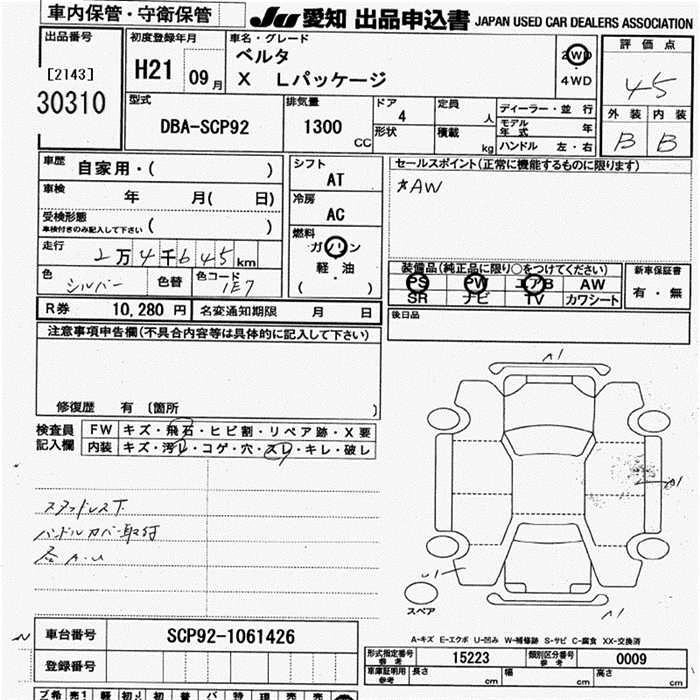 車内保管・守衛保管
JU 愛知 出品申込書 JAPAN USED CAR DEALERS ASSOCIATION
出品番号
[2143]
30310
初度登録年月
H21 09月
車名・グレード
ベルタ
X Lパッケージ
2WD
4WD
評価点
4.5
外装 内装
B B
型式
DBA-SCP92
排気量
1300 CC
ドア
4
形状
定員
人
積載
kg
ディーラー・並行
モデル年式 年
ハンドル 左・右
車歴
自家用・( )
車検
年 月( 日)
受検形態
車検付きのみ記入して下さい ( )
走行
2万4千645km
色
シルバー
色替
色コード
1E7
シフト
AT
冷房
AC
燃料
ガソリン
軽・油
( )
セールスポイント(正常に機能するものに限ります)
*AW
装備品(純正品に限り○をつけてください)
PS PW エアB AW
SR ナビ TV カワシート
新車保証書
有・無
後日品
R券 10,280円 名変通知期限 月 日
注意事項申告欄(不具合内容等は具体的に記入して下さい)
修復歴 有 〔箇所 〕
検査員記入欄
FW キズ・飛石・ヒビ割・リペア跡・X要
内装 キズ・汚レ・コゲ・穴・スレ・キレ・破レ
スタッドレス下
ハンドルカバー取付
各A.U
A1
A1
U1
A1
スペア
A-キズ E-エクボ U-凹み W-補修跡 S-サビ C-腐食 XX-交換済
車台番号
SCP92-1061426
登録番号
形式指定番号 参考 15223
類別区分番号 参考 0009
車庫証明用 参考 長さ cm 幅 cm 高さ cm